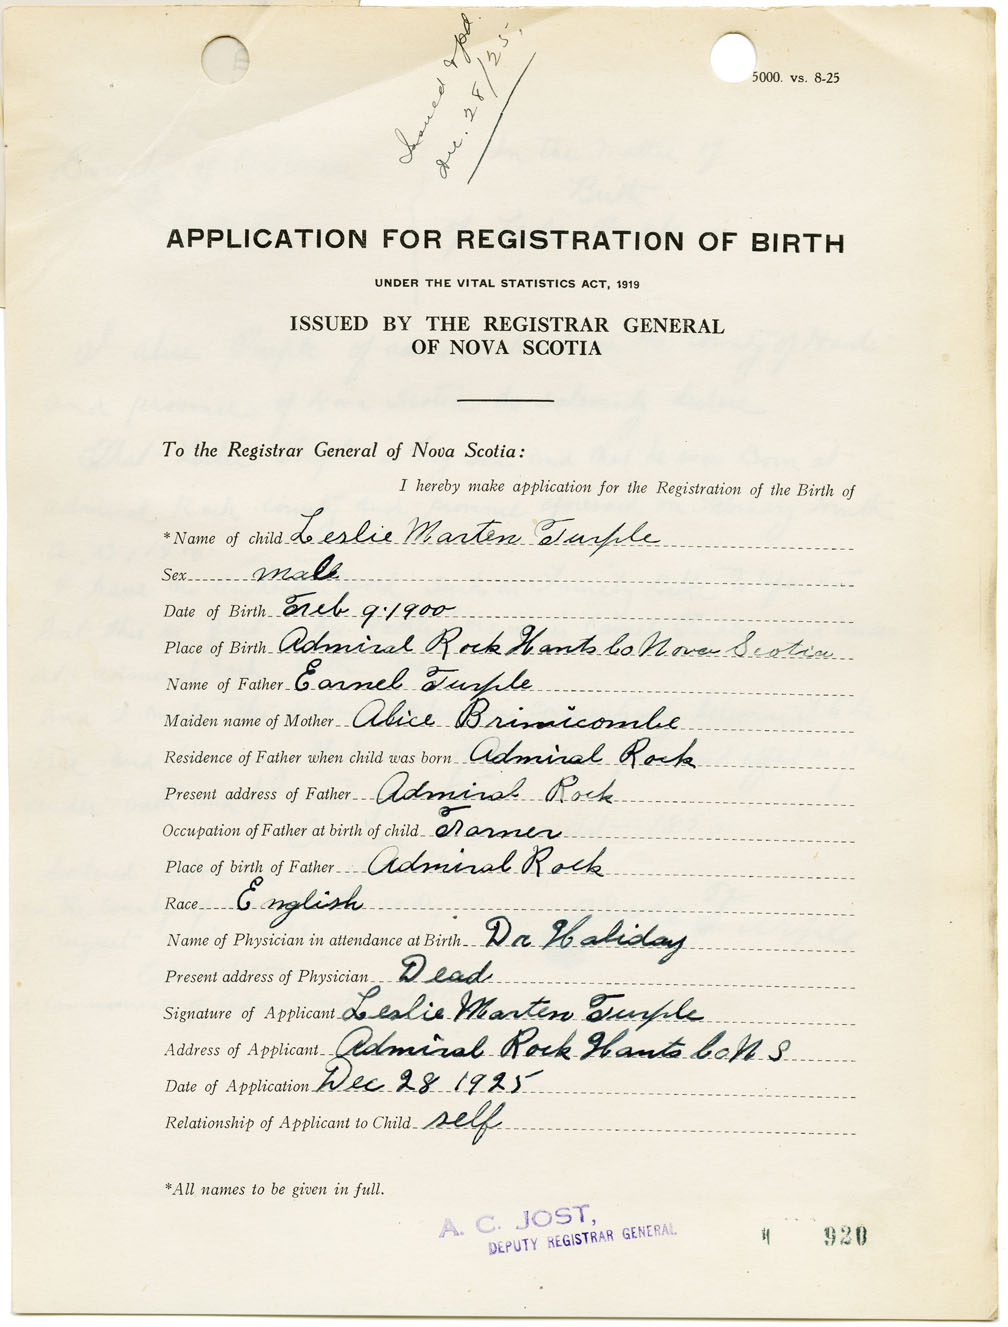 Issued & pd.
Dec. 28/25.
5000. vs. 8-25
APPLICATION FOR REGISTRATION OF BIRTH
UNDER THE VITAL STATISTICS ACT, 1919
ISSUED BY THE REGISTRAR GENERAL
OF NOVA SCOTIA
To the Registrar General of Nova Scotia:
I hereby make application for the Registration of the Birth of
*Name of child Leslie Marten Turple
Sex male
Date of Birth Feb 9. 1900
Place of Birth Admiral Rock Hants Co Nova Scotia
Name of Father Earnel Turple
Maiden name of Mother Alice Brimicombe
Residence of Father when child was born Admiral Rock
Present address of Father Admiral Rock
Occupation of Father at birth of child Farmer
Place of birth of Father Admiral Rock
Race English
Name of Physician in attendance at Birth Dr Haliday
Present address of Physician Dead
Signature of Applicant Leslie Marten Turple
Address of Applicant Admiral Rock Hants Co N S
Date of Application Dec 28 1925
Relationship of Applicant to Child self
*All names to be given in full.
A. C. JOST,
DEPUTY REGISTRAR GENERAL
920